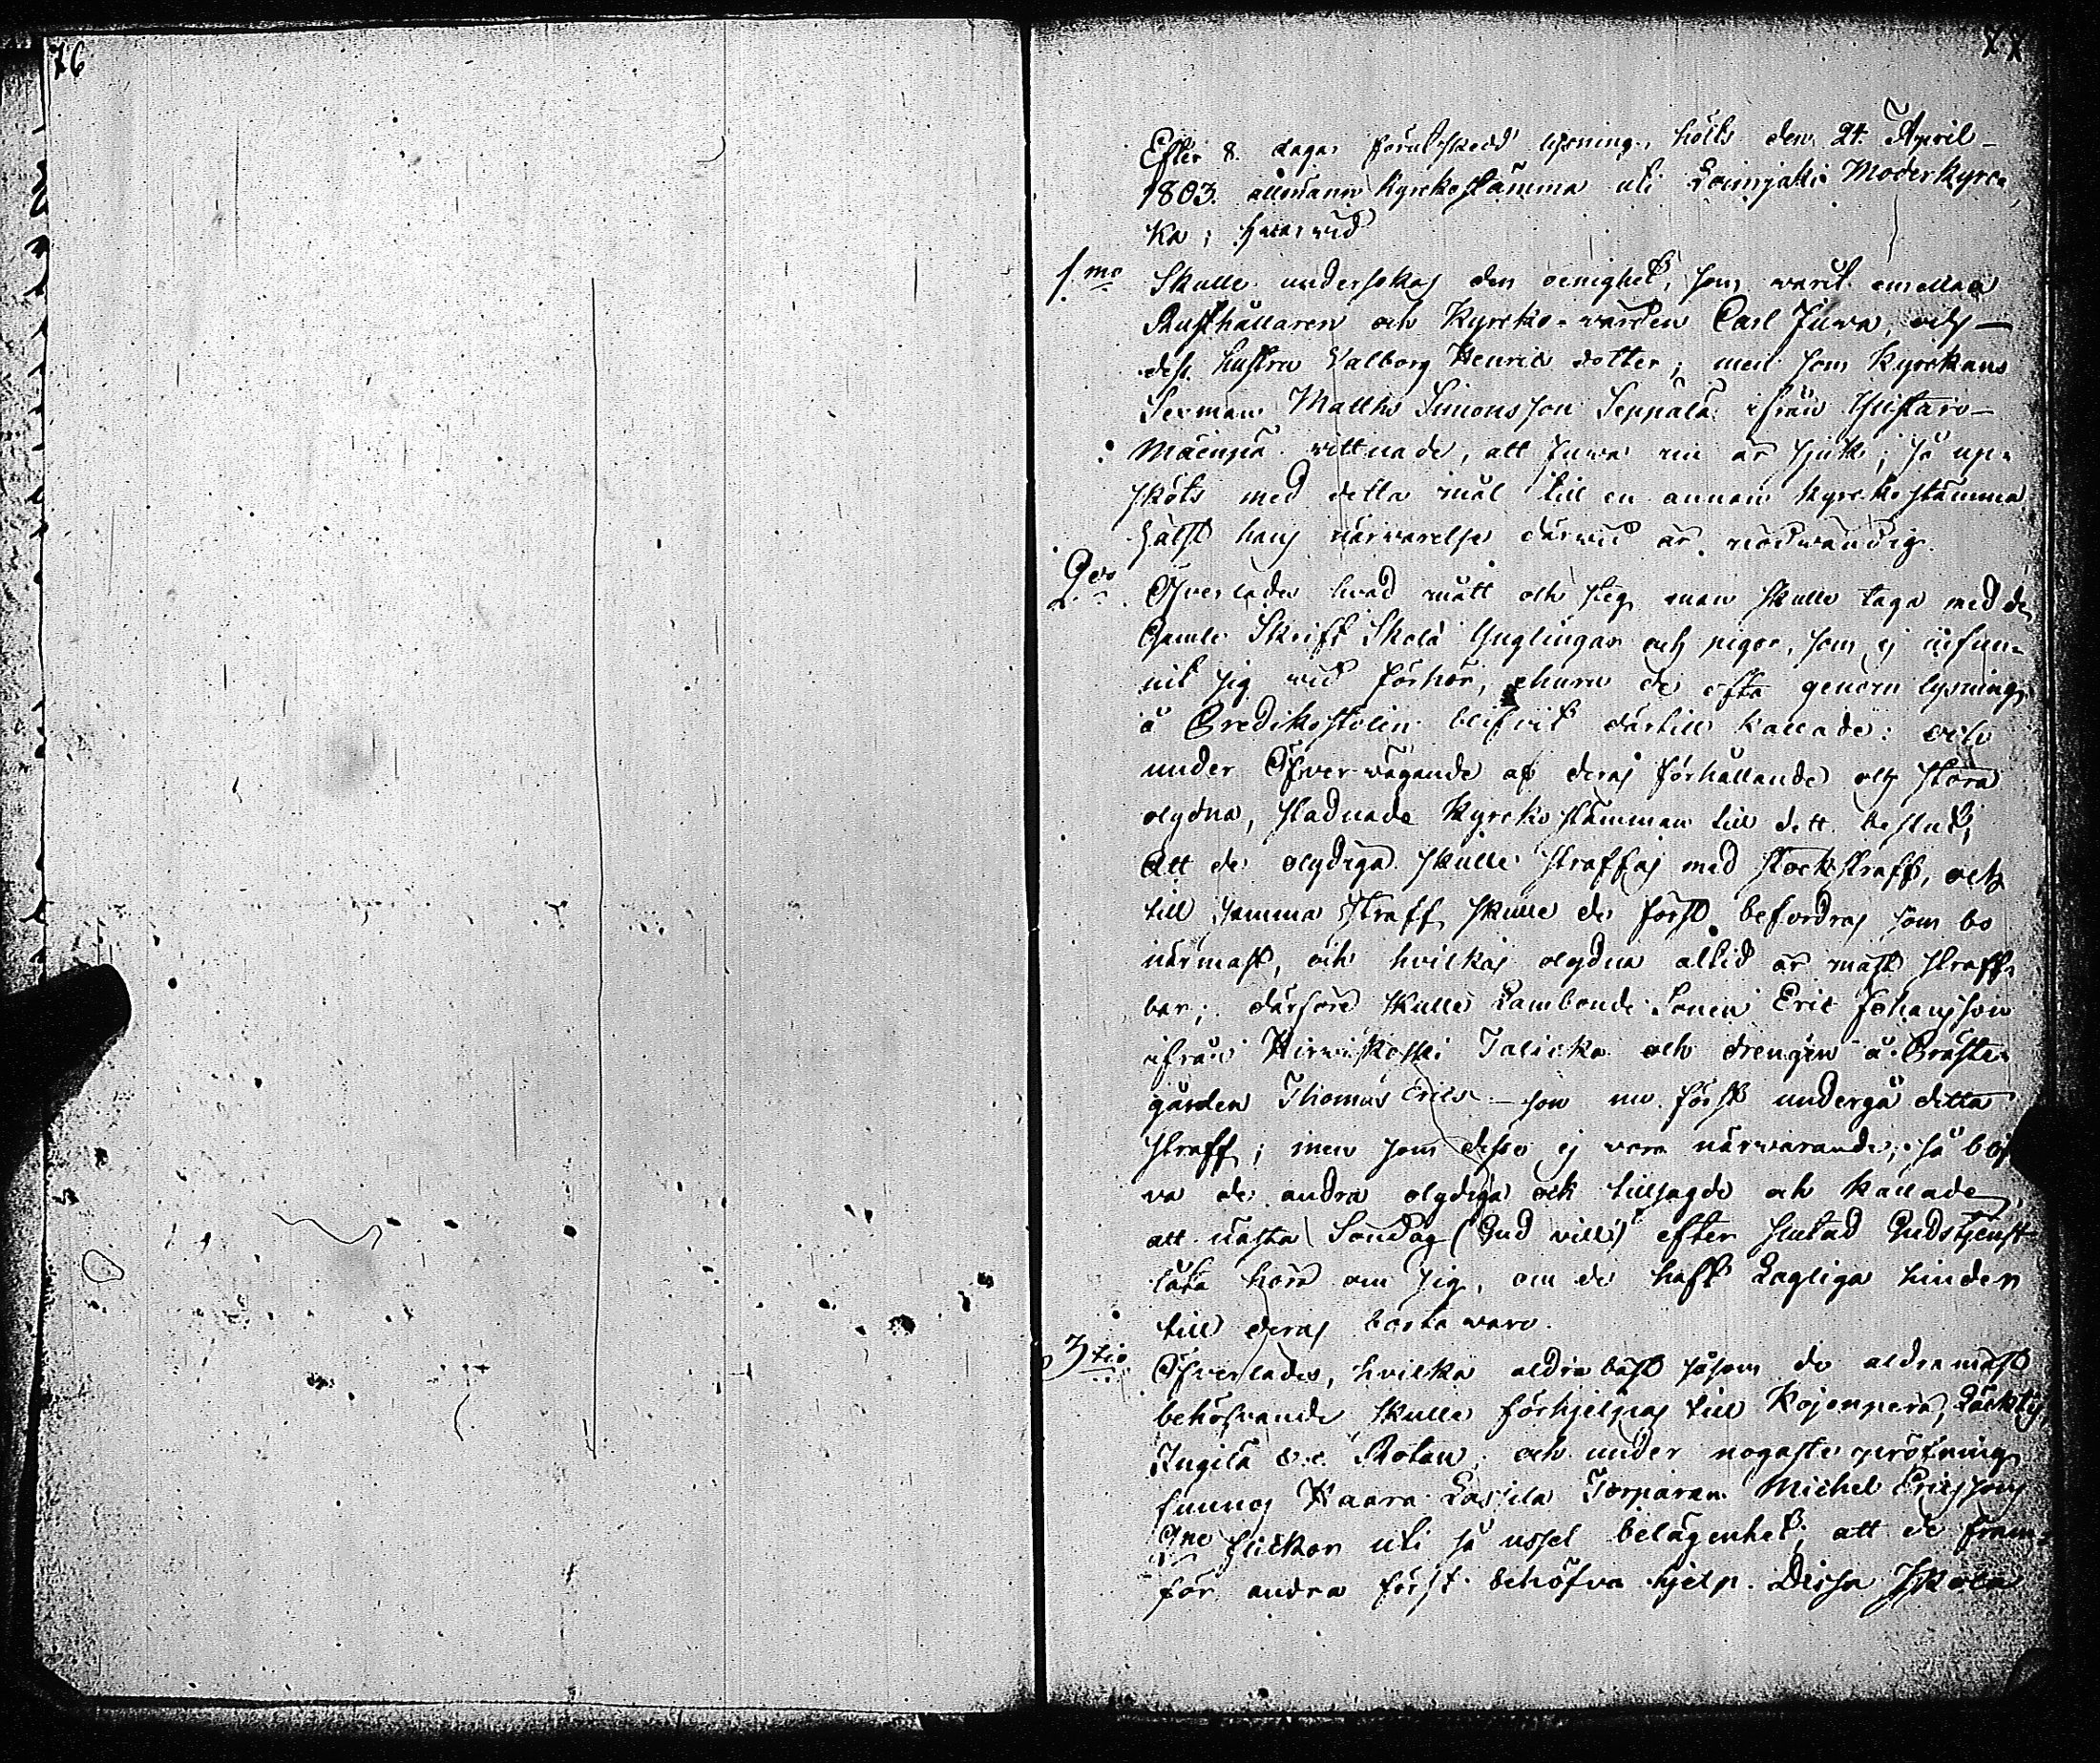 76
77
Efter 8. dagar förut skedd lysning, hölts den 24. April
1803. allmänn Kyrkostämma uti Loimjoki Moderkyrc-
ka; hwarwid
1.mo Skulle undersökas den oenighet, som warit emellan
Rusthållaren och Kyrcko-wärden Carl Juwa, och
dess hustru Valborg Henrics dotter; men som Kyrckans
Sexman Matths Simonsson Seppälä ifrån
Mäenpä wittnade, att Juwa nu är sjuk; så up-
sköts med detta mål till en annan Kyrckostämma
hälst hans närwarelse därwid är nödwändig.
2do Öfverlades hwad mått och steg man skulle taga med de
Gamle Skrift Skola Ynglingar och pigor, som ej infun-
nit sig wid förhör, ehuru de ofta genom lysning
å Predikostolen blifvit därtill kallade: och
under Öfwer-wägande af deras förhållande och stora
olydna, stadnade Kyrcko stämman till dett beslut,
Att de olydiga skulle straffas med stockstraff, och
till samma straff skulle de först befordras som bo
närmast, och hvilkas olydna altid är mäst straff-
bar; därföre skulle Lambonde Sonen Eric Johansson
ifrån Hirwikoski Talicka och drengen å Präste-
gården Thomas Erics-son nu först undergå detta
straff; men som desse ej voro närwarande, så blef-
vo de andra olydiga ock tillsagde och kallade,
att nästa Söndag (Gud will) efter slutad Gudstjenst
låta höra om sig, om de haft Lagliga hinder
till deras bortowaro.
3tio Öfverlades, hvilka aldrabäst såsom de aldramäst
behöfwande skulle förhjelpas till Kojonperä,
Ingilä &.c. Rotan; och under nogaste pröfning
funnos Haara Lassila Torparen Michel Ericssons
Tne flickor uti så ussel belägenhet, att de fram-
för andra först behöfva hjelp. Dessa Skola